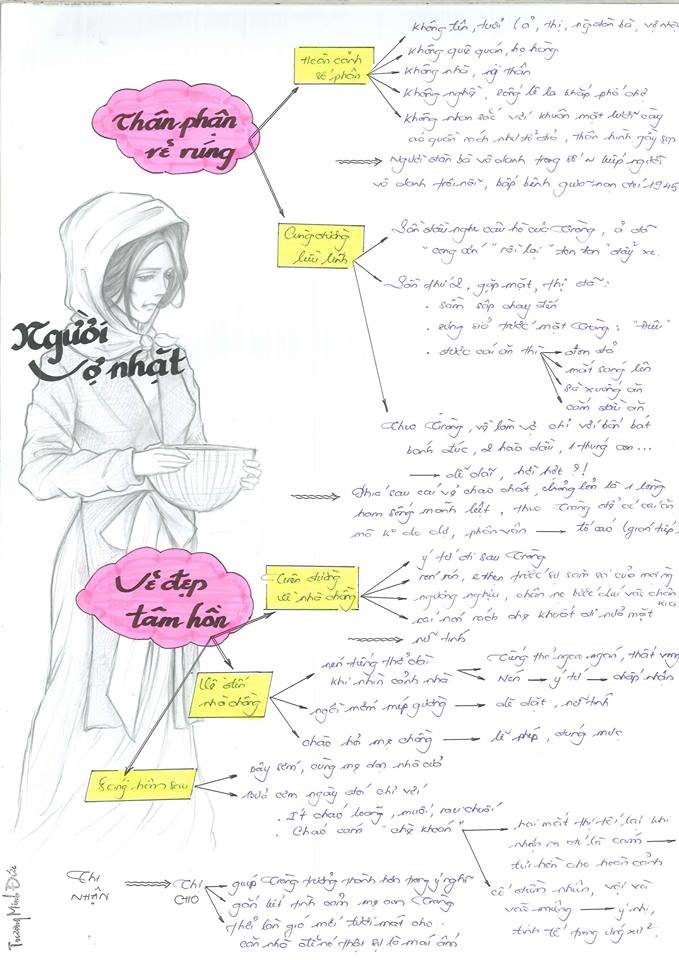 Thân phận
rẻ rúng
Hoàn cảnh
số phận
không tên, tuổi (ả, thị, người đàn bà, vợ nhặt
không quê quán, họ hàng
không nhà, ng thân
không nghề, sống lê la khắp phố chợ
không nhan sắc với khuôn mặt lưỡi cày
áo quần rách như tổ đỉa, thân hình gầy sọp
Người đàn bà vô danh trong số N kiếp người
vô danh trôi nổi, bấp bênh giữa nạn đói 1945
Cùng đường
liều lĩnh
Lần đầu nghe câu hò của Tràng, ả đã
"cong cớn" rồi lại "ton ton" đẩy xe.
Lần thứ 2, gặp mặt, thị đã:
. sầm sập chạy đến
. sưng sỉa trước mặt Tràng: "Điêu"
. được cái ăn thì
đon đả
mắt sáng lên
sà xuống ăn
cắm đầu ăn
Theo Tràng, về làm vợ chỉ với bốn bát
bánh đúc, 2 hào dầu, 1 thúng con...
dễ dãi, hời hợt ?!
Phía sau cái vẻ chao chát, chỏng lỏn là 1 lòng
ham sống mãnh liệt, theo Tràng để có cái ăn
mà k do dự, phân vân
tố cáo (gián tiếp)
Người
vợ nhặt
Vẻ đẹp
tâm hồn
Trên đường
về nhà chồng
ý tứ đi sau Tràng
rón rén, e thẹn trước sự săm soi của mọi ng
ngượng nghịu, chân nọ bước díu vào chân
kia
cái nón rách che khuất đi nửa mặt
nữ tính
Về đến
nhà chồng
nén tiếng thở dài
khi nhìn cảnh nhà
Cũng thở ngao ngán, thất vọng
Nén
ý tứ
chấp nhận
ngồi mớm mép giường
dè dặt, nữ tính
chào hỏi mẹ chồng
lễ phép, đúng mực
Sáng hôm sau
Dậy sớm, cùng mẹ dọn nhà cửa
Bữa cơm ngày đói chỉ với
. Ít cháo loãng, muối, rau chuối
. Cháo cám "chè khoán"
hai mắt thị tối lại khi
nhận ra đó là cám
tủi hờn cho hoàn cảnh
cố điềm nhiên, vội và
vào miệng
ý nhị,
tinh tế trong ứng xử
Thị
NHẬN
Thị
CHO
giúp Tràng trưởng thành hơn trong ý nghĩ
gắn kết tình cảm mẹ con Tràng
thổi làn gió mới tươi mát cho
căn nhà
thật sự là mái ấm
Trương Minh Đức